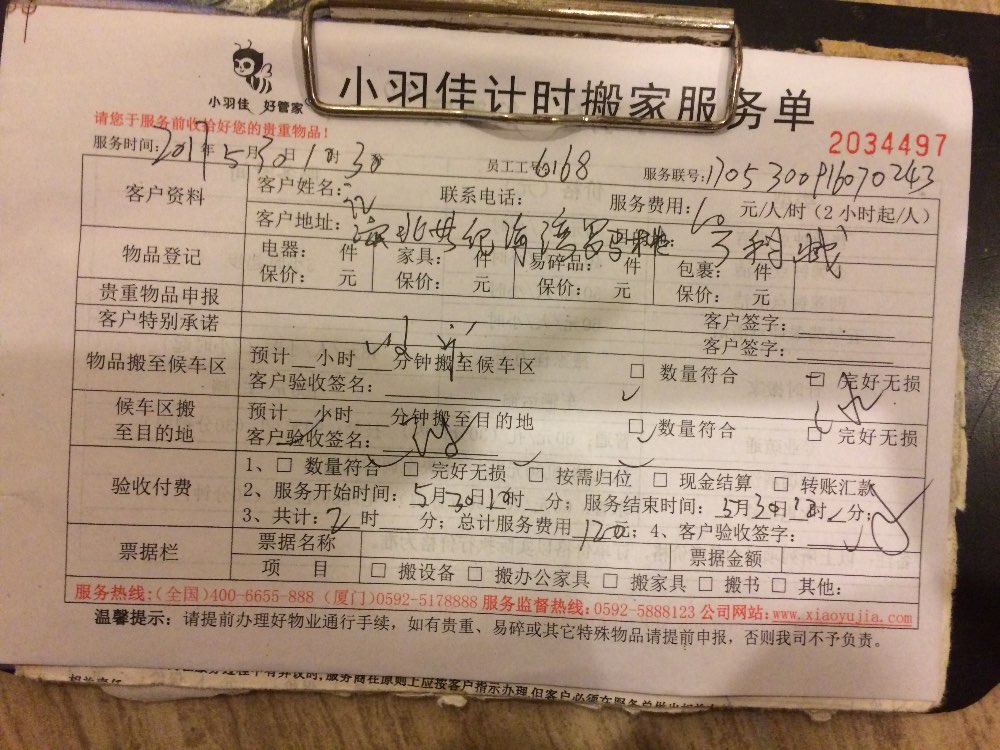 小羽佳 好管家
小羽佳计时搬家服务单
请您于服务前收拾好您的贵重物品!
2034497
服务时间: 2017年5月30日 时30 员工工号 6168 服务联号: 1705300916070243
客户资料 客户姓名: 联系电话: 服务费用: 60 元/人/时 (2小时起/人)
客户地址:
物品登记 电器: 件 家具: 件 易碎品: 件 包裹: 件
保价: 元 保价: 元 保价: 元 保价: 元
贵重物品申报 客户签字:
客户特别承诺 客户签字:
物品搬至候车区 预计 小时 分钟搬至候车区 □ 数量符合 □ 完好无损
客户验收签名:
候车区搬至目的地 预计 小时 分钟搬至目的地 □ 数量符合 □ 完好无损
客户验收签名:
验收付费 1、□ 数量符合 □ 完好无损 □ 按需归位 □ 现金结算 □ 转账汇款
2、服务开始时间: 5月30日10时 分; 服务结束时间: 5月30日12时 分;
3、共计: 2 时 分; 总计服务费用 120 元; 4、客户验收签字:
票据栏 票据名称 票据金额
项 目 □ 搬设备 □ 搬办公家具 □ 搬家具 □ 搬书 □ 其他:
服务热线:(全国)400-6655-888 (厦门)0592-5178888 服务监督热线: 0592-5888123 公司网站: www.xiaoyujia.com
温馨提示: 请提前办理好物业通行手续, 如有贵重、易碎或其它特殊物品请提前申报, 否则我司不予负责。
服务商在原则上应按客户指示办理,但客户必须在服务单